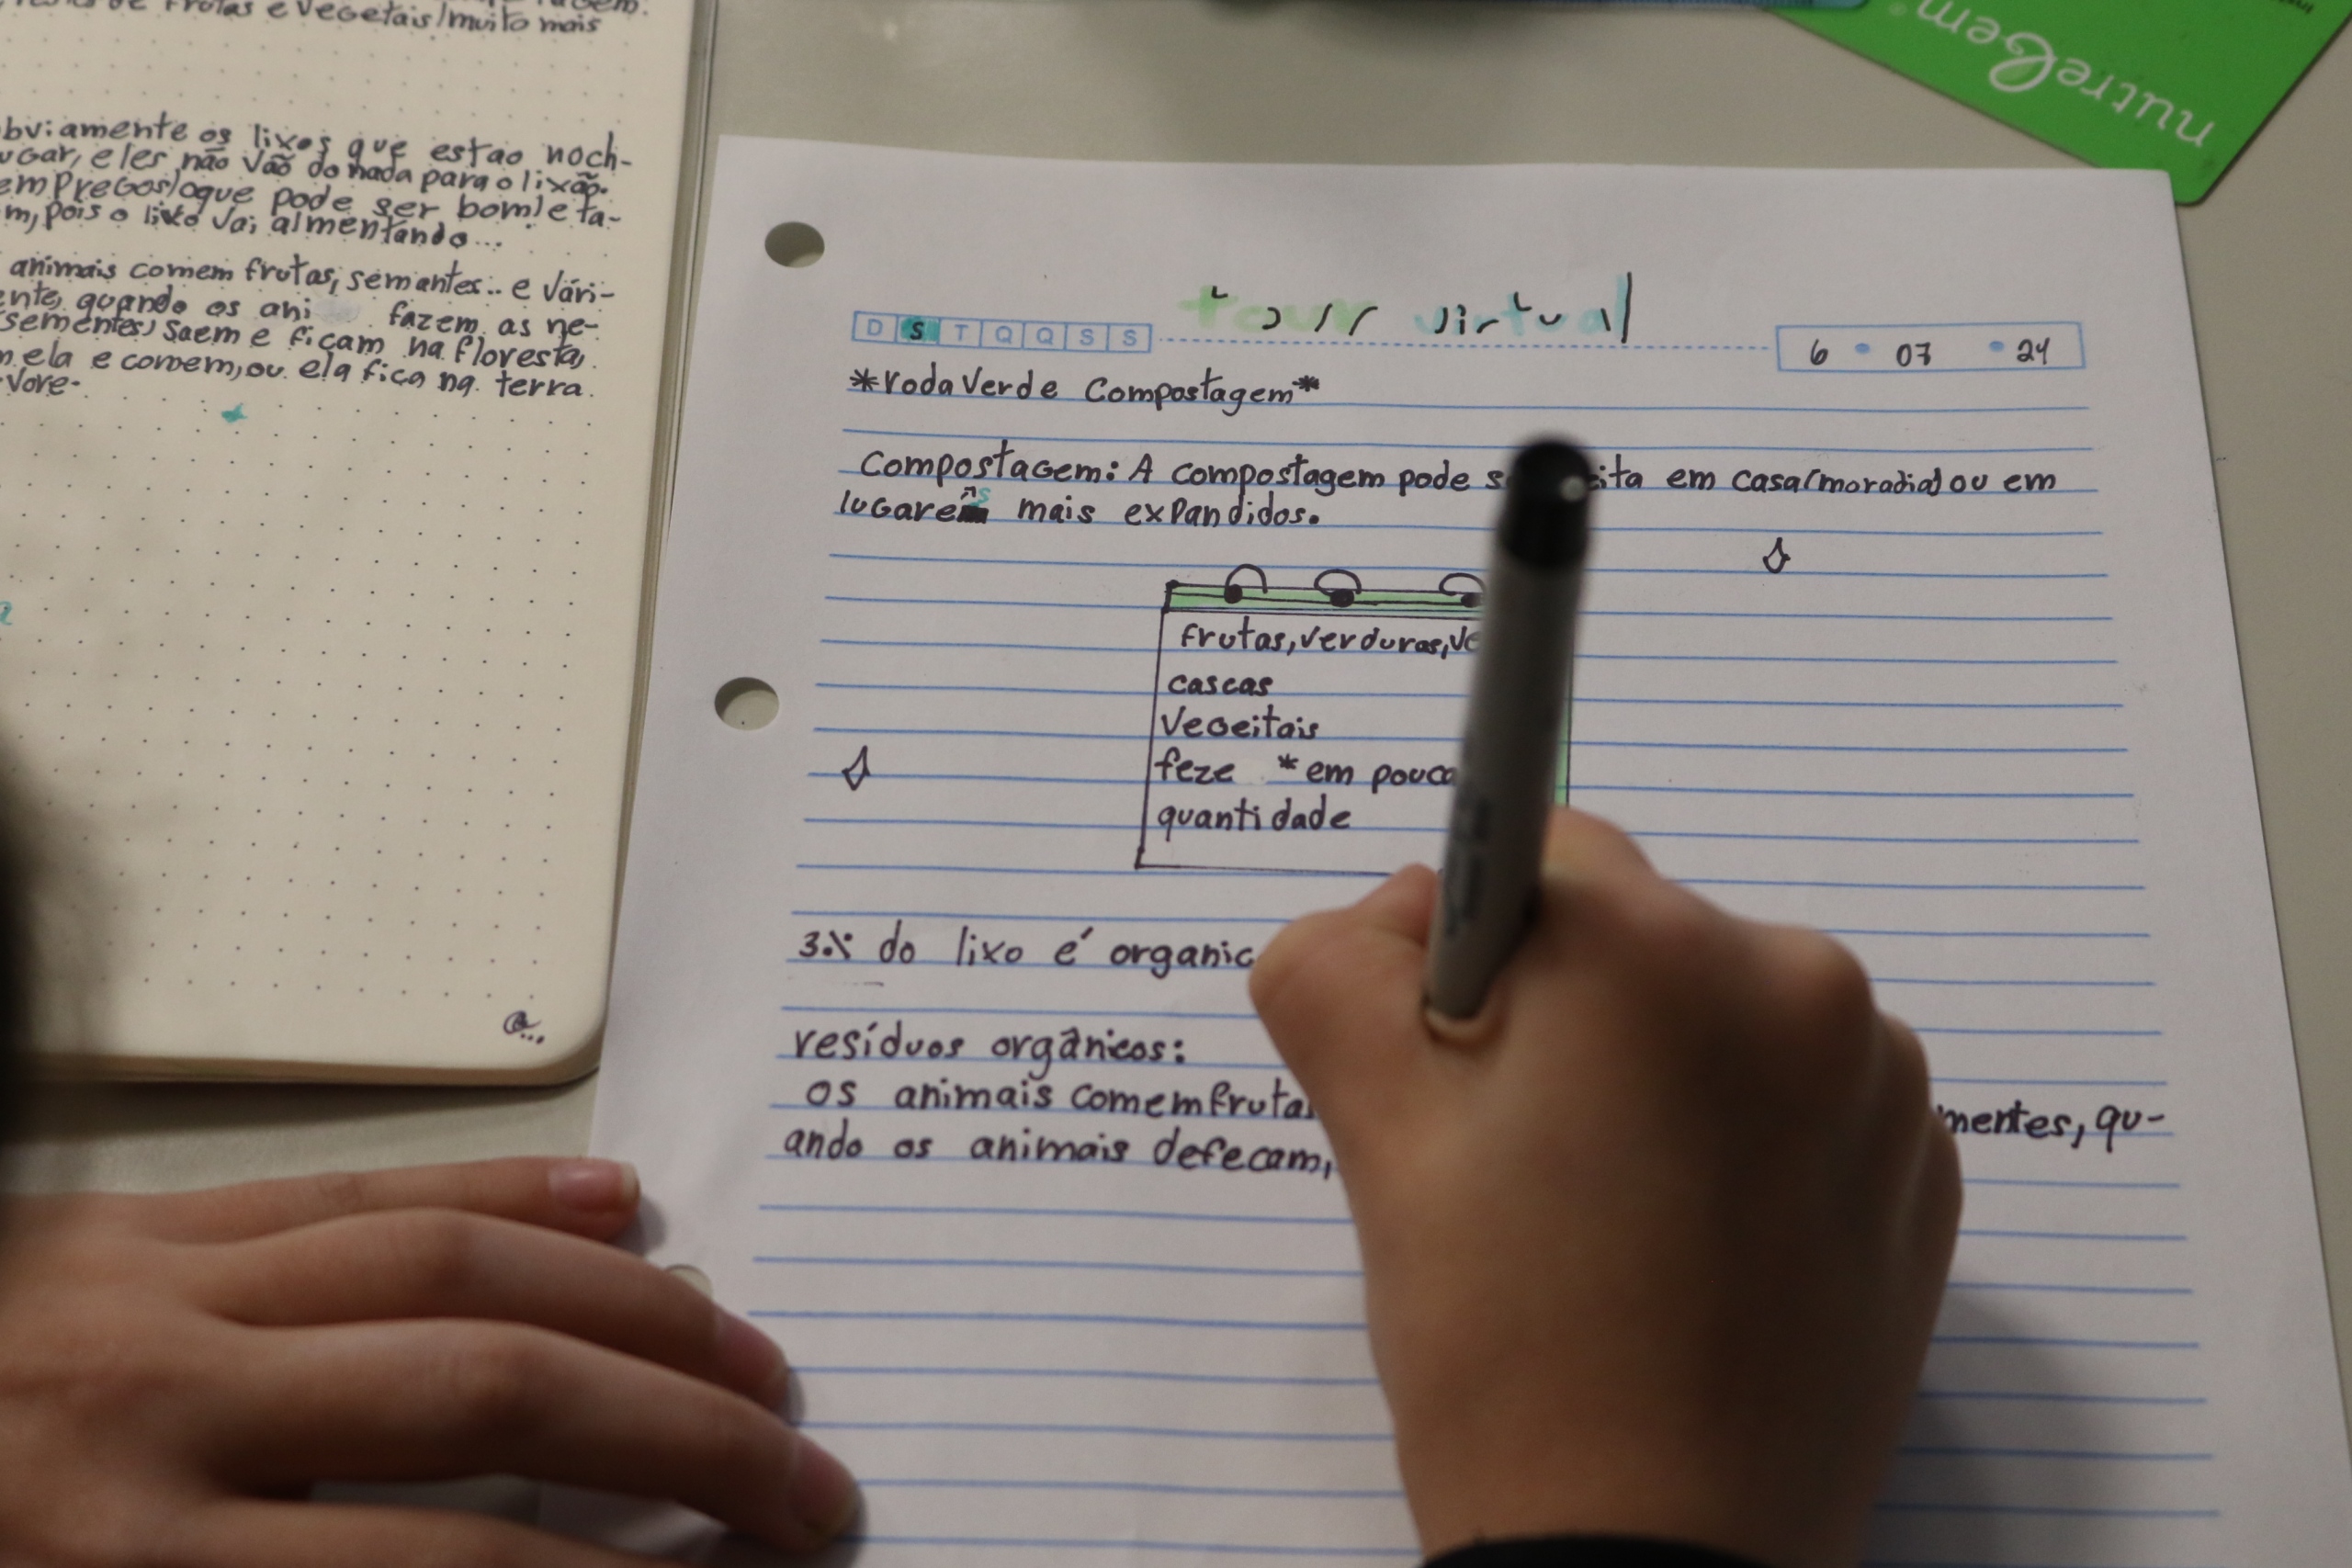 frutas e vegetais/muito mais
os lixos que estao noch-
eles não vão do nada para o lixão.
oque pode ser bom)e ta-
pois o lixo vai almentando...
animais comem frutas, semantes... e vári-
quando os ani fazem as ne-
sementes) saem e ficam na floresta,
ela e comem, ou ela fica na terra.
nutreBem
tour virtual
D S T Q Q S S
6 07 24
*roda verde compostagem*
compostagem: A compostagem pode em casa(moradia) ou em
lugares mais expandidos.
frutas, verduras,
cascas
Vegeitais
feze *em pouca
quantidade
do lixo é
resíduos orgânicos:
os animais comem qu-
ando os animais defecam,